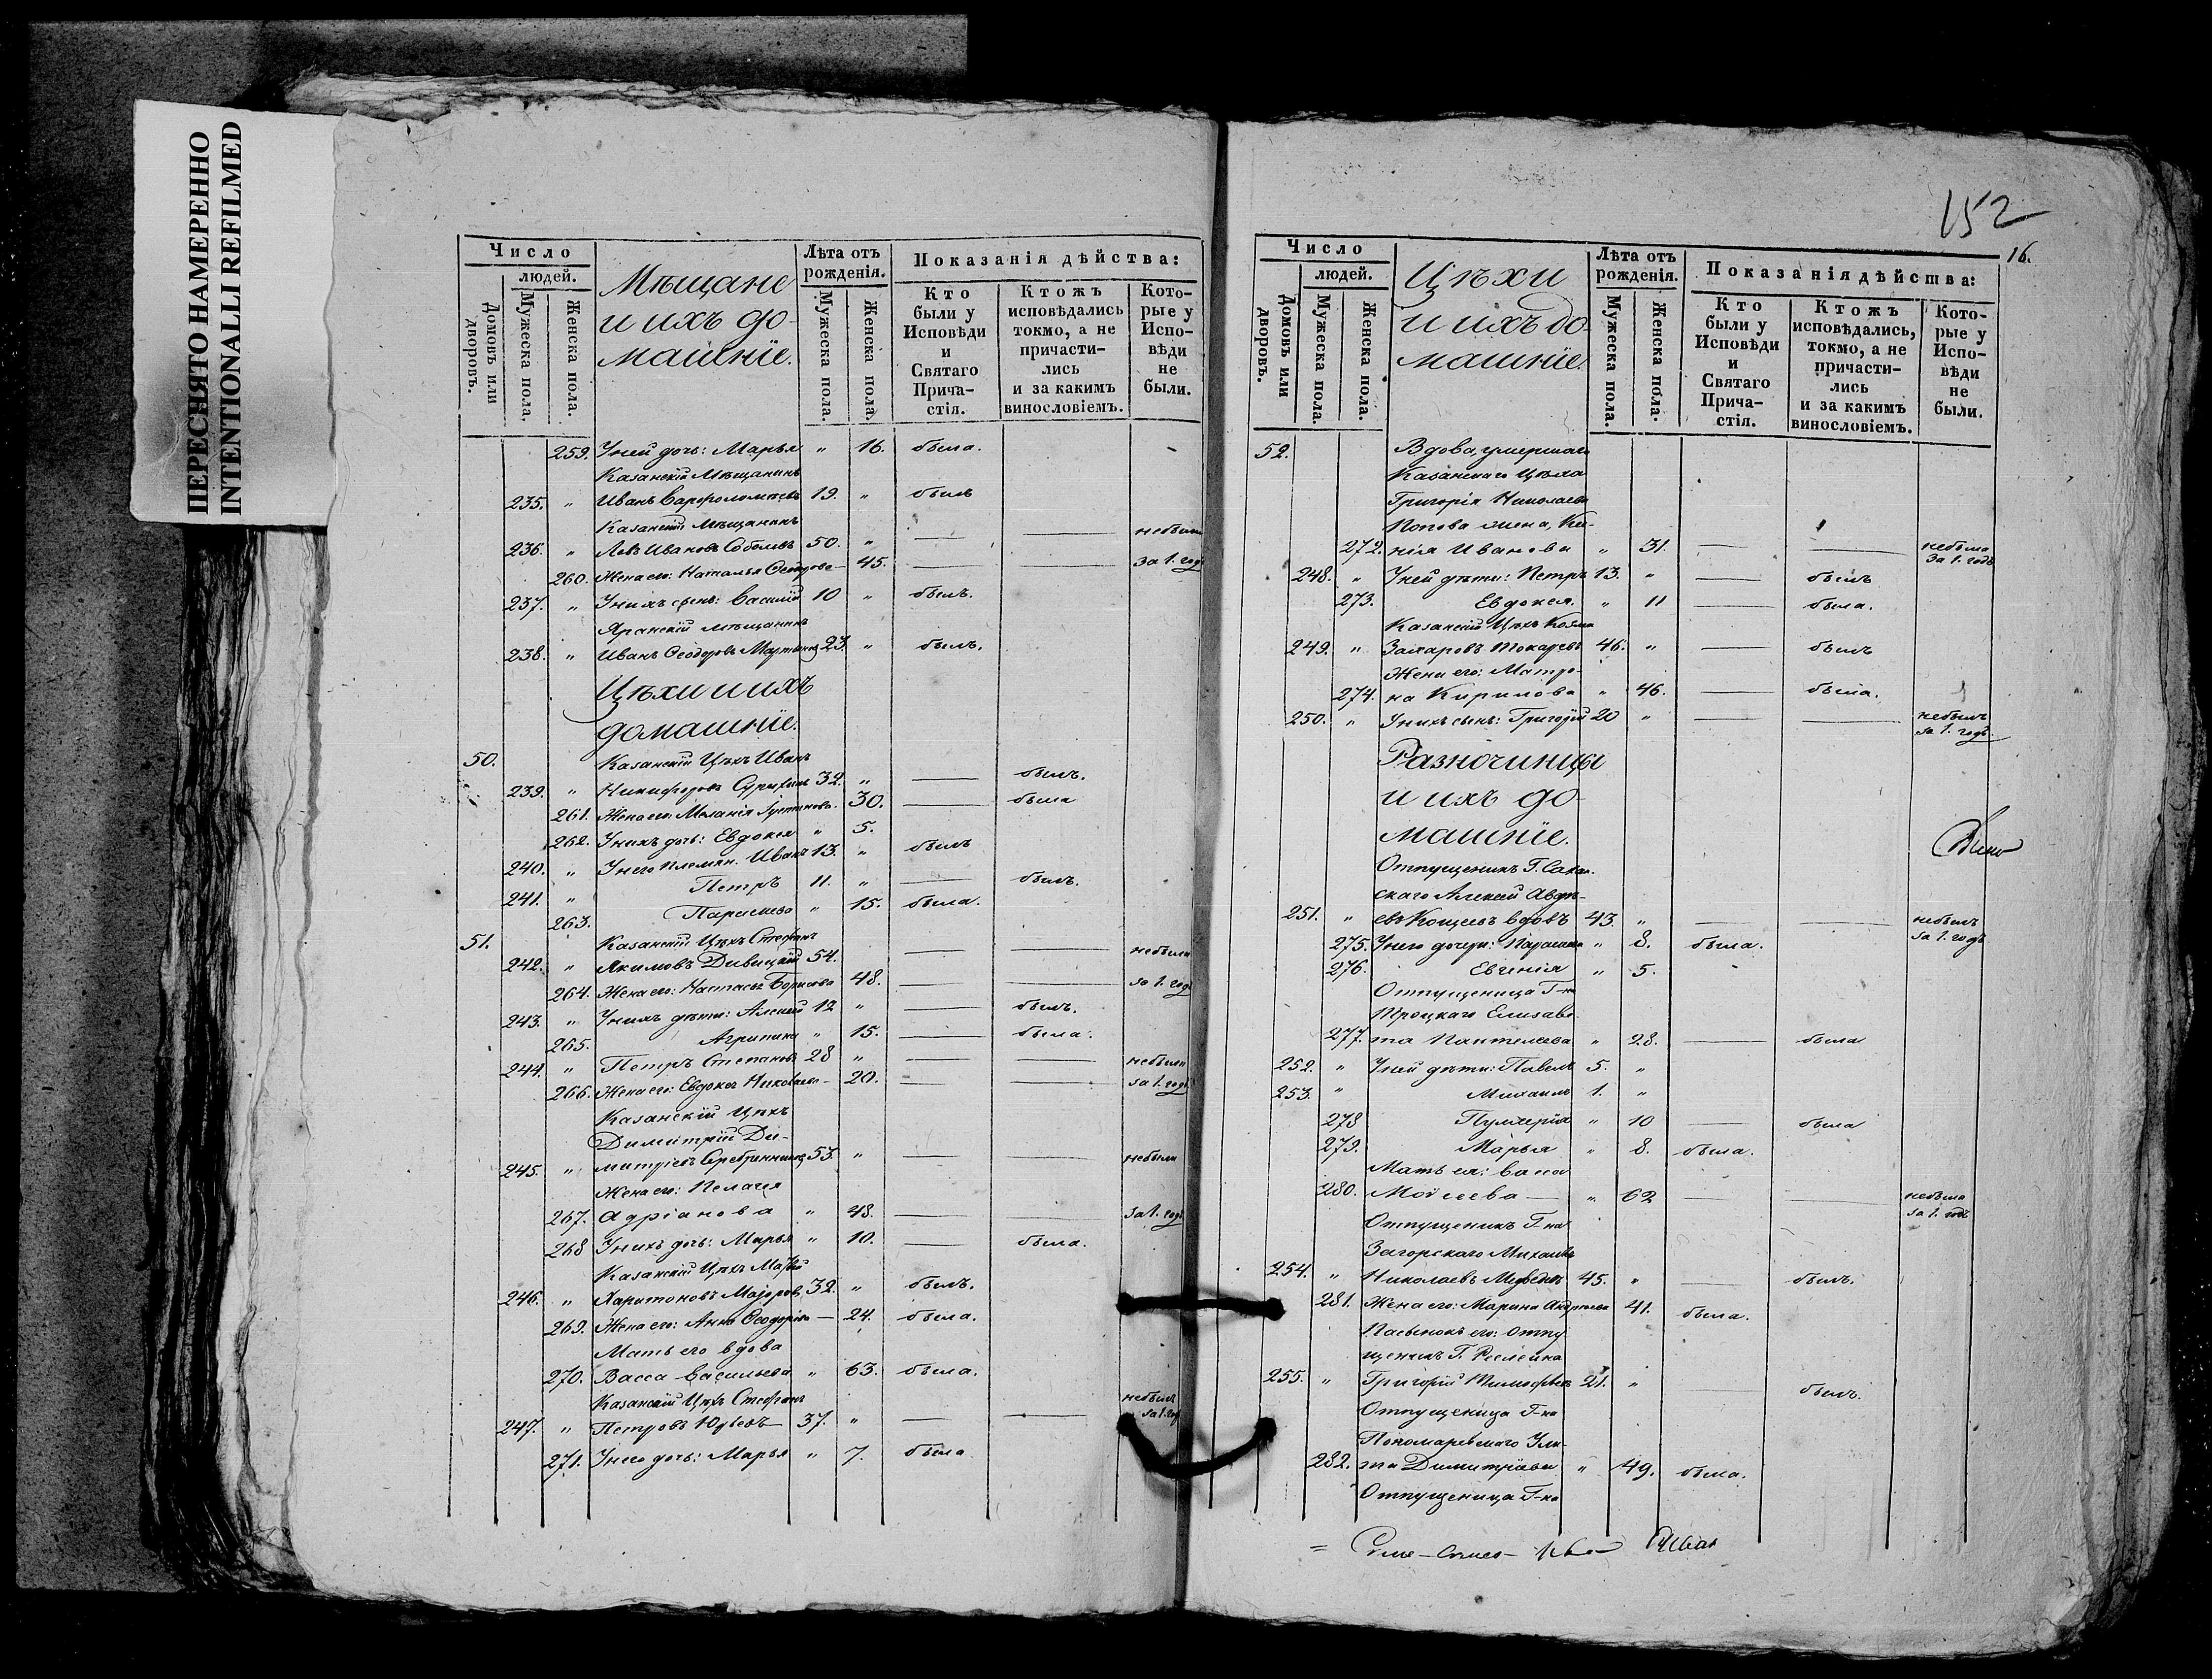 ПЕРЕСНЯТО НАМЕРЕННО
INTENTIONALLI REFILMED
Число
людей.
Домовъ или дворовъ.
Мужеска пола.
Женска пола.
Мѣщане
и ихъ до-
машніе.
Лѣта отъ рожденія.
Мужеска пола.
Женска пола.
Показанія дѣйства:
Кто были у Исповѣди и Святаго Прича-стія.
Ктожъ исповѣдались токмо, а не причасти-лись и за какимъ винословіемъ.
Кото-рые у Испо-вѣди не были.
259. У ней дочь: Марья " 16. была.
Казанскій Мѣщанинъ
235. " Иванъ Варфоломѣевъ 19. " былъ
Казанскій Мѣщанинъ
236. " Левъ Ивановъ Соболевъ 50. " — — небыли
260. Жена его: Наталья — 45. — — за 1. годъ
237. " У нихъ сынъ: Василій 10 " былъ.
Яранскій мѣщанинъ
238. " Иванъ Ѳеодоровъ 23. " былъ.
Цѣхи и ихъ
домашніе.
50. Казанскій Цѣхъ Иванъ
239. " Никифоровъ 32. " — былъ.
261. Жена его: Меланія 30. — была
262. У нихъ дочь: Евдокея " 5.
240. " У него племян. Иванъ 13. " былъ
241. " Петръ 11. " — былъ.
263. Параскева " 15. была.
51. Казанскій Цѣхъ Стефанъ
242. " Якимовъ 54. — — небыли
264. Жена его: Настасья Борисова 48. — — за 1. годъ
243. " У нихъ дѣти: Алексѣй 12 " — былъ.
265. Агрипина " 15. — была.
244. " Петръ Степановъ 28 " — — небыли
266. Жена его: Евдокея Николаева — 20. — — за 1. годъ
Казанскій Цѣхъ
Димитрій Ди-
245. " митріевъ Серебрянниковъ 53. " — — небыли
Жена его: Пелагея
267. Адріанова " 48. — — за 1. годъ
268 У нихъ дочь: Марья " 10. — была.
Казанскій Цѣхъ
246. " Харитоновъ Маіоровъ 32. " былъ.
269. Жена его: Анна — 24. была.
Мать его вдова
270. Васса Васильева " 63. была.
Казанскій Цѣхъ Стефанъ
247. " Петровъ 37. " — — небылъ за 1. годъ
271. У него дочь: Марья " 7. была
152
16.
Число
людей.
Домовъ или дворовъ.
Мужеска пола.
Женска пола.
Цѣхи
и ихъ до-
машніе.
Лѣта отъ рожденія.
Мужеска пола.
Женска пола.
Показанія дѣйства:
Кто были у Исповѣди и Святаго Прича-стія.
Ктожъ исповѣдались, токмо, а не причасти-лись и за какимъ винословіемъ.
Кото-рые у Испо-вѣди не были.
52. Вдова умершаго
Казанскаго Цѣха
Григорія Николаева
Попова жена,
272. нія Иванова " 31. — — небыла за 1. годъ
248. " У ней дѣти: Петръ 13. " — былъ
273. Евдокея. " 11 — была.
Казанскій Цѣхъ Козма
249. " Захаровъ Токаревъ 46. " — былъ
Жена его: Матро-
274. на Кирилова " 46. — была.
250. " У нихъ сынъ: Григорій 20 " — — небылъ за 1. годъ.
Разночинцы
и ихъ до-
машніе.
Отпущеникъ Г.
скаго Алексѣй Авдѣ-
251. " евъ Кощеевъ вдовъ 43. " — — небылъ за 1. годъ
275. У него дочери: Параскева " 8. была.
276. Евгенія " 5.
Отпущеница Г-на
Троцкаго Елисаве-
277. та Пантелеева " 28. — была
252. " У ней дѣти: Павелъ 5. "
253. " Михаилъ 1. "
278 Пулхерія " 10 — была
279. Марья " 8. была.
Мать ея: Васса
280. Моисеева — " 62 — — небыла за 1. годъ
Отпущеникъ Г-на
Загорскаго Михаилъ
254. " Николаевъ Медвѣдевъ 45. " — былъ.
281. Жена его: Марина Андреева 41. была.
Пасынокъ его: Отпу-
щеникъ Г.
255. " Григорій Тимофѣевъ 21. " — былъ.
Отпущеница Г-на
Пономаревскаго Ули-
282. та Димитріева " 49. была.
Отпущеница Г-на